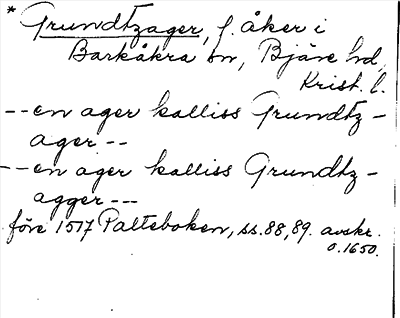 * Grundtzager, f. åker i
Barkåkra sn, Bjäre hd,
Krist. l.
-- en ager kalliss Grundtz-
ager --
-- en ager kalliss Grundtz-
agger ---
före 1517 Palteboken, ss. 88, 89. avskr.
o. 1650.